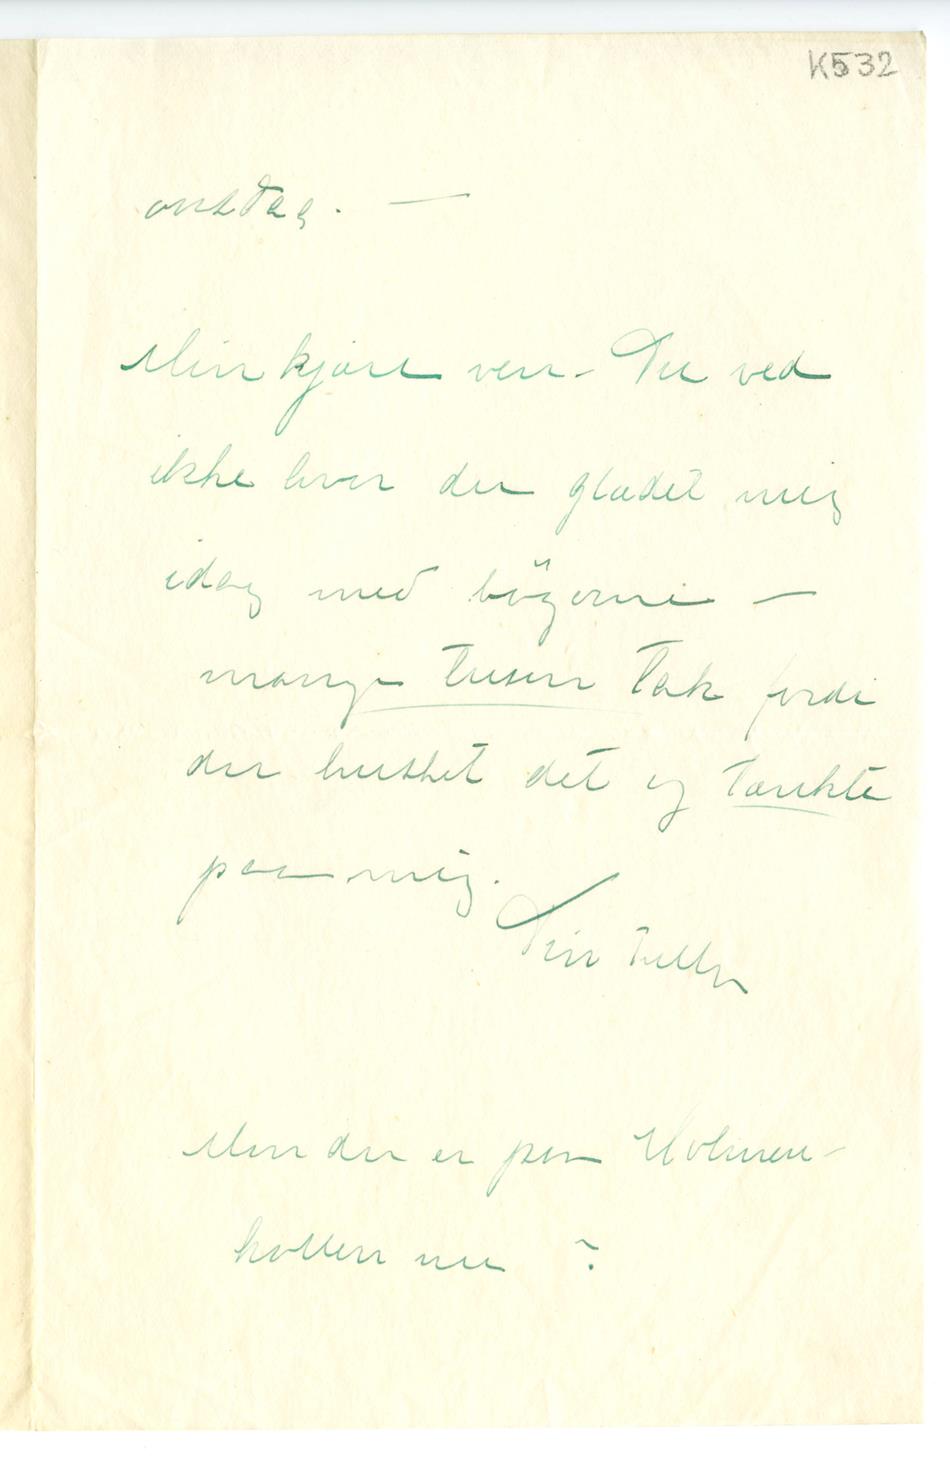 K532
onsdag. —
Min kjære ven – Du ved
ikke hvor du glædet mig
idag med bøgerne —
mange tusen tak fordi
du husket det og tænkte
paa mig.
Din Tulla
Mon du er paa Holmen-
kollen nu ?